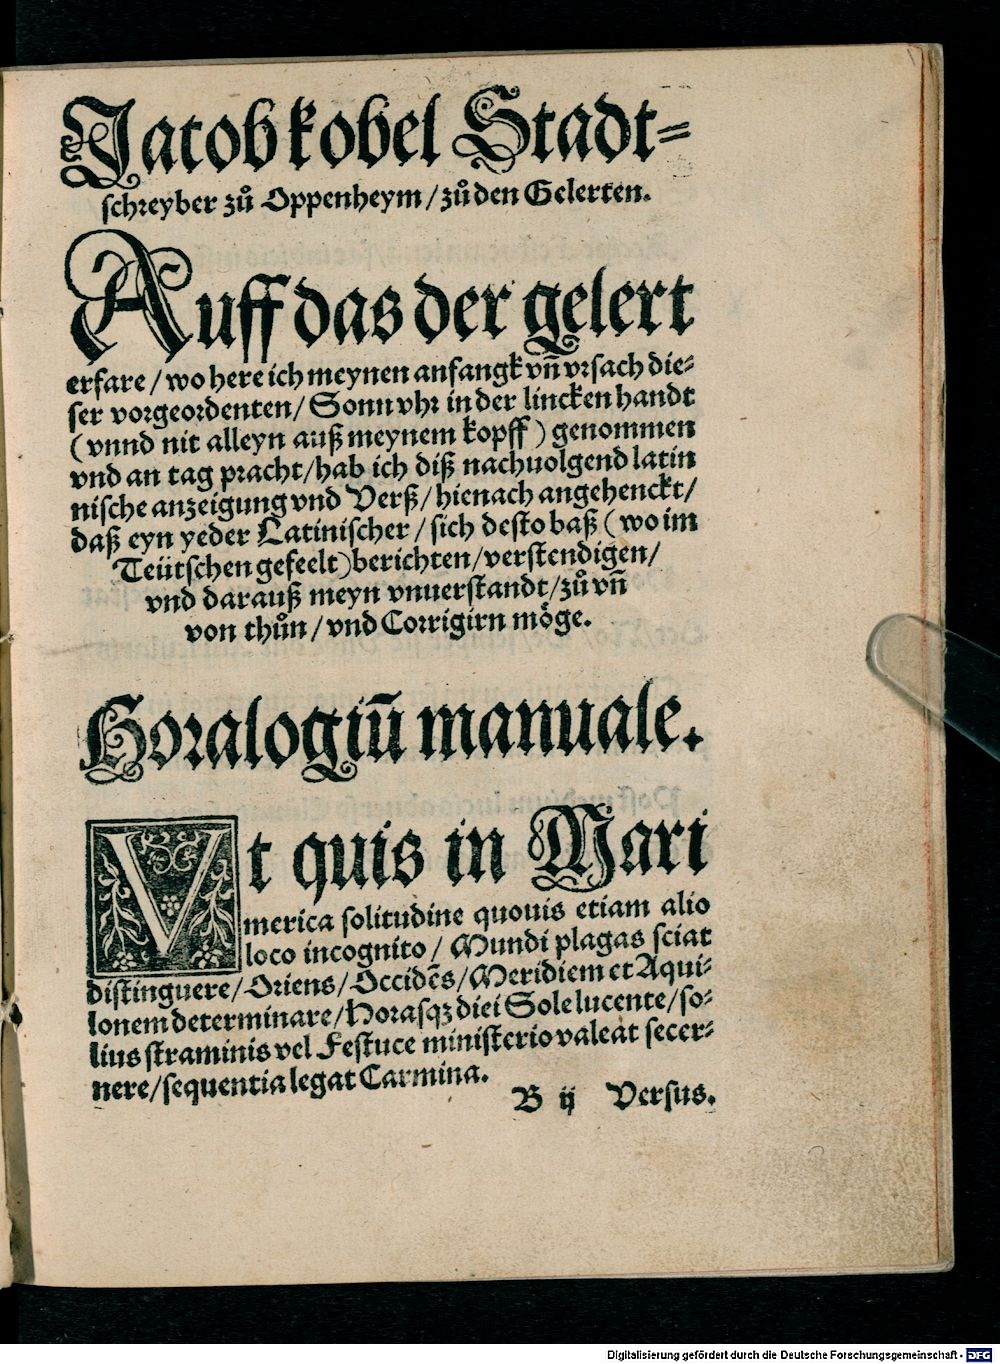 Jacob kobel Stadt⸗
schreyber zů Oppenheym / zů den Gelerten.
Auff das der gelert
erfare / wo here ich meynen anfangk vñ vrsach die⸗
ser vorgeordenten / Sonn vhr in der lincken handt
(vnnd nit alleyn auß meynem kopff) genommen
vnd an tag pracht / hab ich diß nachuolgend latin
nische anzeigung vnd Verß / hienach angehenckt /
daß eyn yeder Latinischer / sich desto baß (wo im
Teütschen gefeelt) berichten / verstendigen /
vnd darauß meyn vnuerstandt / zů vñ
von thůn / vnd Corrigirn möge.
Horalogiũ manuale.
Vt quis in Mari
merica solitudine quouis etiam alio
loco incognito / Mundi plagas sciat
distinguere / Oriens / Occidẽs / Meridiem et Aqui⸗
lonem determinare / Horasqꝫ diei Sole lucente / so⸗
lius straminis vel Festuce ministerio valeat secer⸗
nere / sequentia legat Carmina.
B ij Versus.
Digitalisierung gefördert durch die Deutsche Forschungsgemeinschaft - DFG